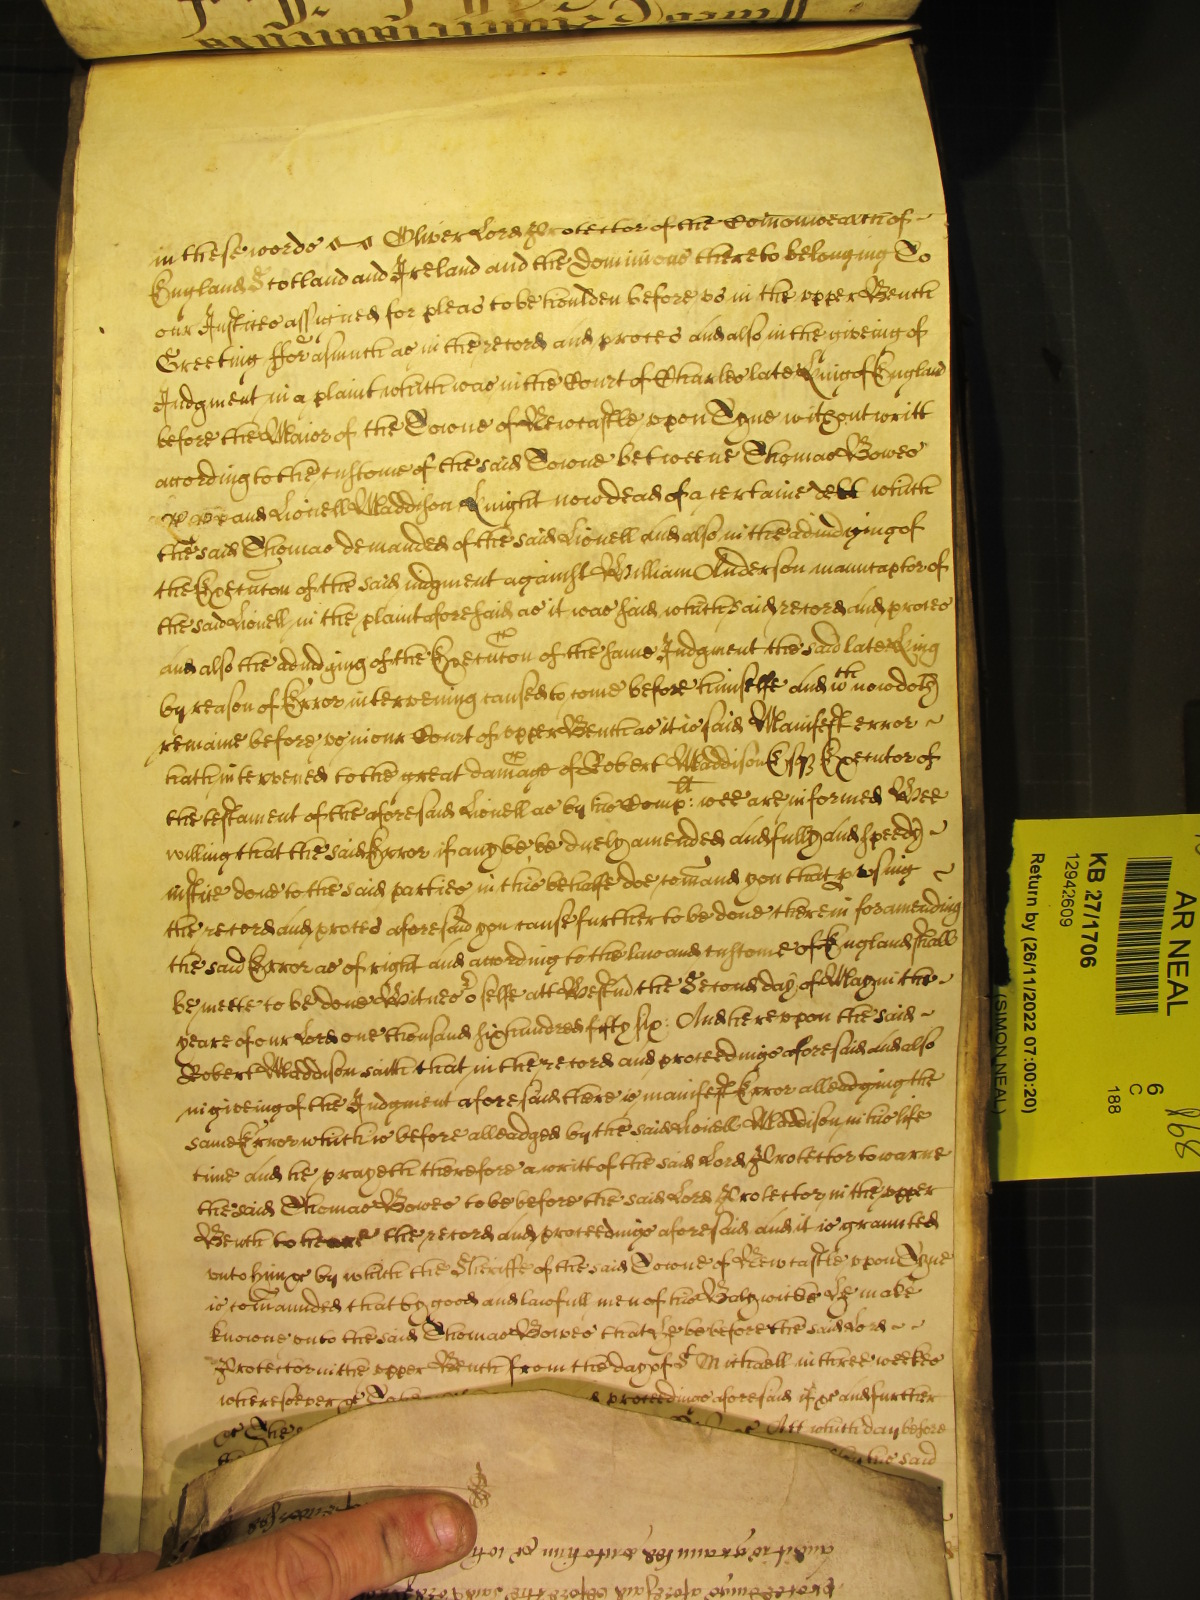 in these words Oliver Lord Protector of the Comonwealth of
England Scotland and Ireland and the Dominions thereto belonging To
our Justices assigned for pleas to be houlden before us in the upper Bench
Greeting fforasmuch as in the record and proces and also in the giveing of
Judgment in a plaint which was in the Court of Charles late King of England
before the Maior of the Towne of Newcastle upon Tyne without writt
according to the custome of the said Towne betweene Thomas Bowes
and Lionell Maddison Knight now dead of a certaine debt which
the said Thomas demanded of the said Lionell and also in the adiudging of
the Execucon of the said iudgment against William Anderson manucaptor of
the said Lionell in the plaint aforesaid as it was said which said record and proces
and also the adiudging of the Execucon of the same Judgment the said late King
by reason of Error interveening caused to come before himselfe and wch now doth
remaine before us in our Court of upper Bench as it is said Manifest error
hath intervened to the great damage of Robert Maddison Esq Executor of
the testament of the aforesaid Lionell as by his Complt: wee are informed Wee
willing that the said Error if any be be duely amended and fully and speedy
iustice done to the said parties in this behalfe doe comand you that
the record and proces aforesaid you cause further to be done therein for amending
the said Error as of right and according to the law and custome of England shall
be meete to be done Witnes or selfe att Westmr the Second day of May in the
yeare of our Lord one thousand six hundred fifty six: And hereupon the said
Robert Maddison saith that in the record and proceedings aforesaid and also
in giveing of the Judgment aforesaid there is manifest Error alleadging the
same Error which is before alleadged by the said Lionell Maddison in his life
time and he prayeth therefore a writt of the said Lord Protector to warne
the said Thomas Bowes to be before the said Lord Protector in the upper
Bench to heare the record and proceedings aforesaid and it is graunted
unto him &c by which the Sheriffe of the said Towne of Newcastle upon Tyne
is comaunded that by good and lawfull men of his Balywick he make
knowne unto the said Thomas Bowes that he be before the said Lord
Protector in the upper Bench from the day of St Michaell in three weekes
wheresoever &c proceedings aforesaid if &c and further
&c The &c Att which day before
the said
AR NEAL
KB 27/1706
12942609
Return by (26/11/2022 07:00:20)
(SIMON NEAL)
6
C
188